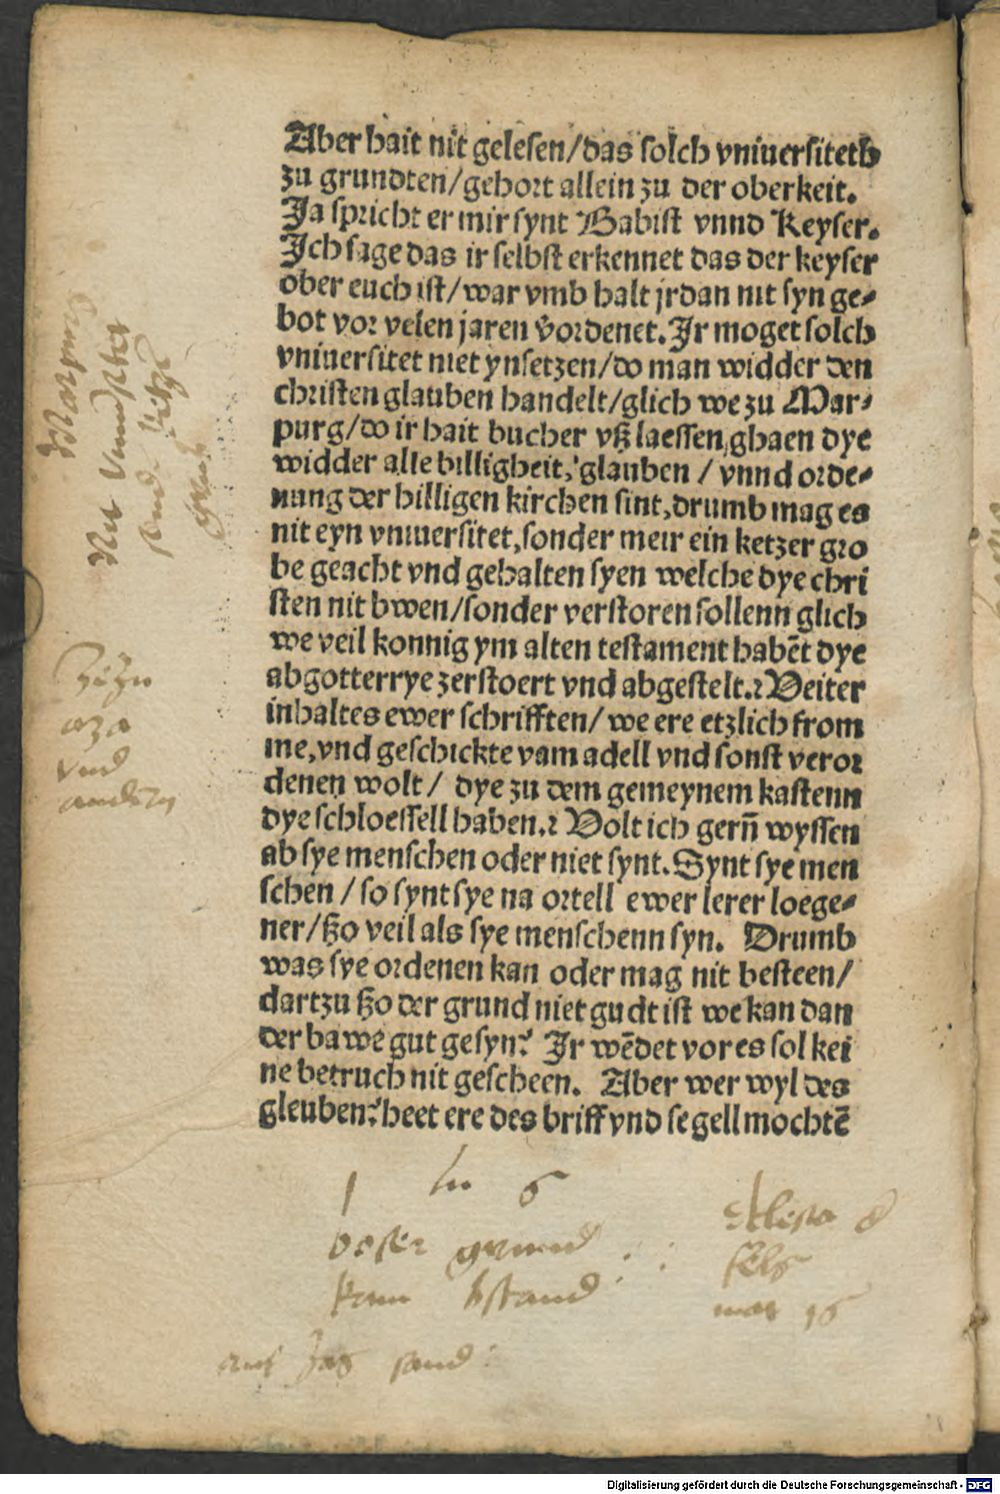 Aber hait nit gelesen/das solch vniuersiteth
zu grundten/gehort allein zu der oberkeit.
Ja spricht er mir synt Babist vnnd Keyser.
Ich sage das ir selbst erkennet das der keyser
ober euch ist/war vmb halt jrdan nit syn ge⸗
bot vor velen jaren vordenet. Ir moget solch
vniuersitet niet ynsetzen/do man widder den
christen glauben handelt/glich we zu Mar⸗
purg/do ir hait bucher vß laessen ghaen dye
widder alle billigheit, glauben / vnnd orde⸗
nung der hilligen kirchen sint, drumb mag es
nit eyn vniuersitet, sonder meir ein ketzer gro
be geacht vnd gehalten syen welche dye chri
sten nit bwen/sonder verstoren sollenn glich
we veil konnig ym alten testament habēt dye
abgotterrye zerstoert vnd abgestelt. Weiter
inhaltes ewer schrifften/ we ere etzlich from
me, vnd geschickte vam adell vnd sonst veror
denen wolt / dye zu dem gemeynem kastenn
dye schloessell haben. Wolt ich gern̄ wyssen
ab sye menschen oder niet synt. Synt sye men
schen / so synt sye na ortell ewer lerer loege⸗
ner/ßo veil als sye menschenn syn. Drumb
was sye ordenen kan oder mag nit besteen/
dartzu ßo der grund niet gudt ist we kan dan
der bawe gut gesyn? Ir wēdet vor es sol kei
ne betruch nit gescheen. Aber wer wyl des
gleuben? heet ere des briff vnd segell mochtē
vnd
andern
boser grund
kan bstand
fels
mat 16
sand
Digitalisierung gefördert durch die Deutsche Forschungsgemeinschaft - DFG